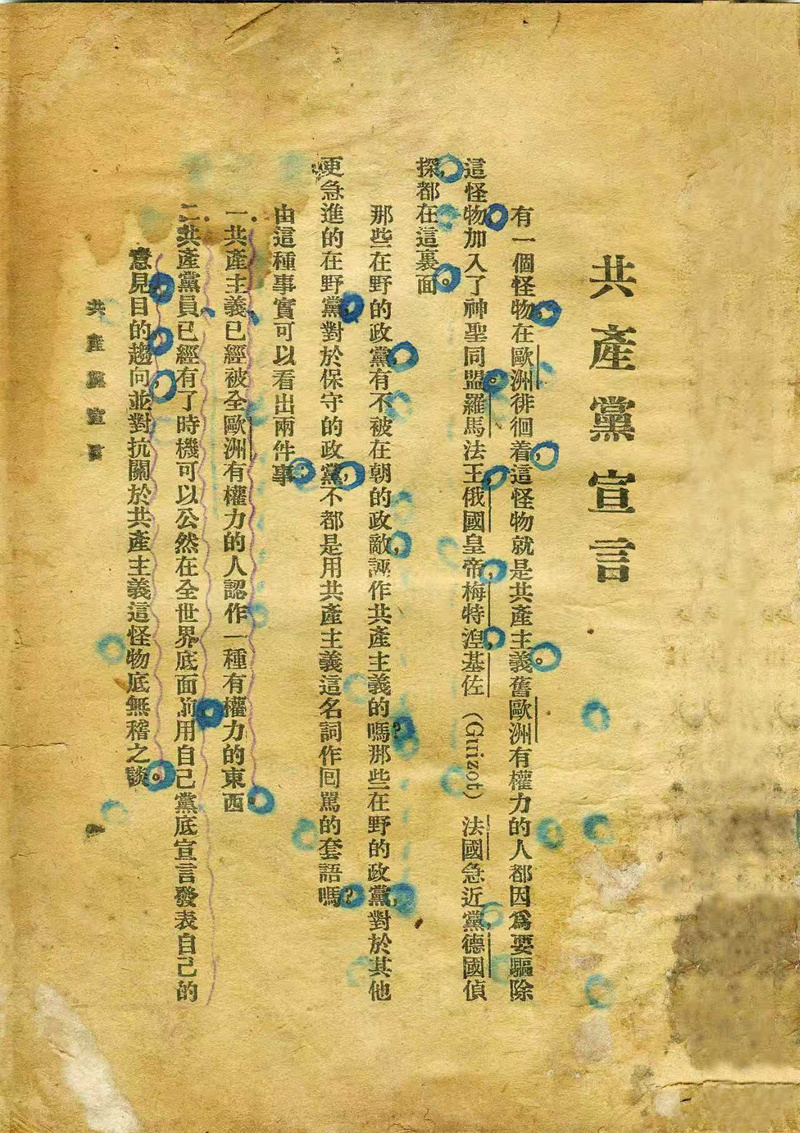 共產黨宣言
有一個怪物在歐洲徘徊着這怪物就是共產主義舊歐洲有權力的人都因爲要驅除
這怪物加入了神聖同盟羅馬法王俄國皇帝梅特湼基佐（Guizot）法國急近黨德國偵
探都在這裏面
那些在野的政黨有不被在朝的政敵誣作共產主義的嗎那些在野的政黨對於其他
更急進的在野黨對於保守的政黨不都是用共產主義這名詞作回罵的套語嗎
由這種事實可以看出兩件事
一共產主義已經被全歐洲有權力的人認作一種有權力的東西
二共產黨員已經有了時機可以公然在全世界底面前用自己黨底宣言發表自己的
意見目的趨向並對抗關於共產主義這怪物底無稽之談
共產黨宣言
一